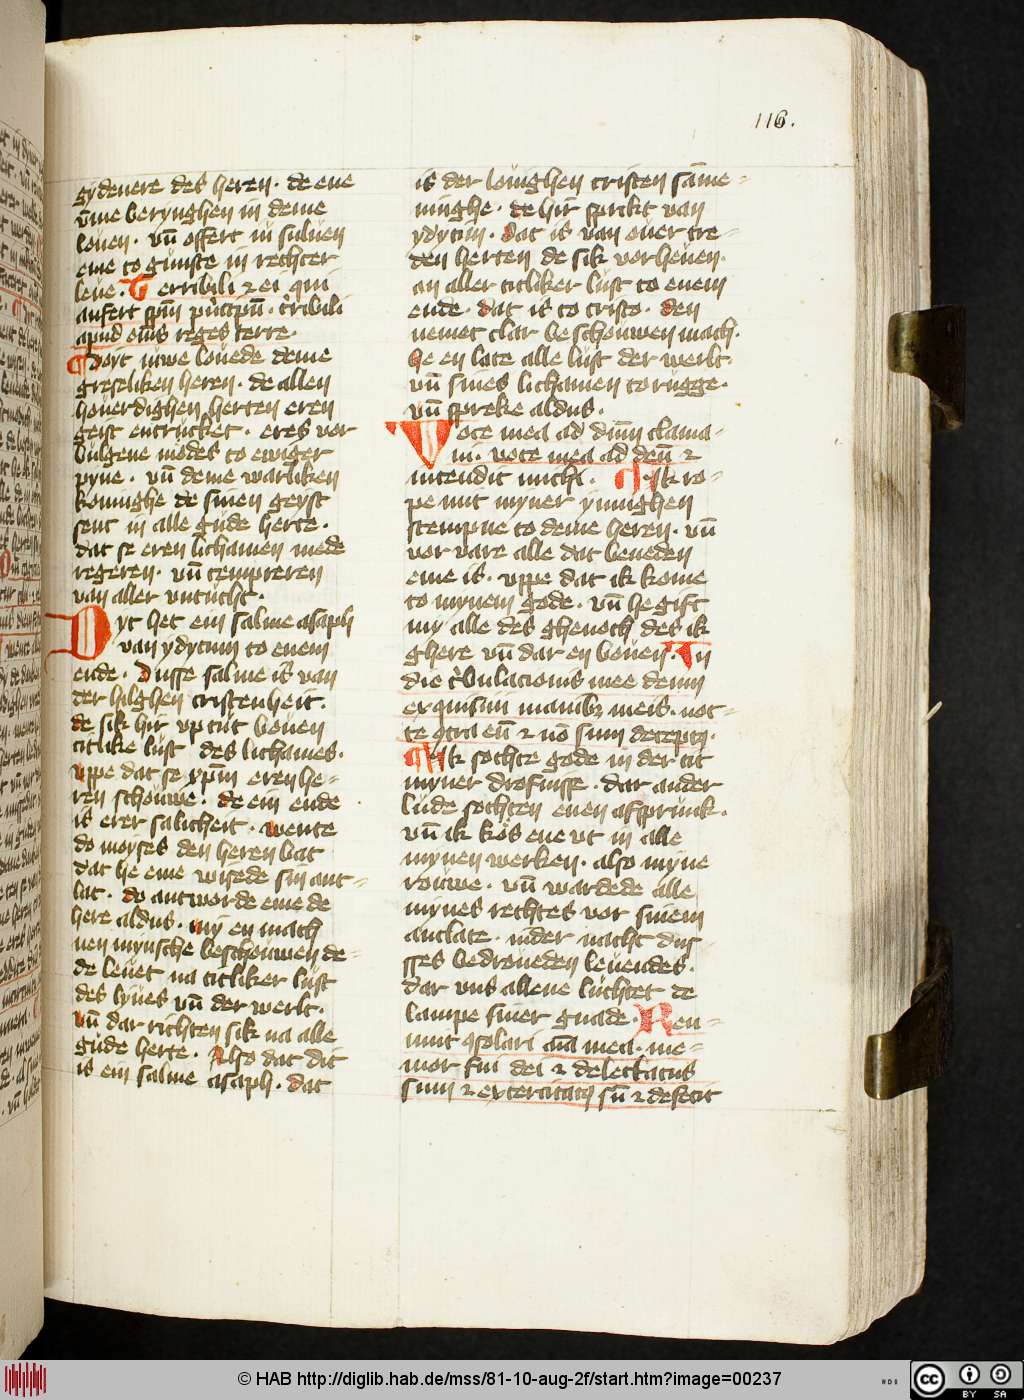 116.
gydenere des heren. de ene
vm̄e berynghen in deme
louen. vn̄ offert iu suluen
eme to gunste in rechter
leue. Terribili ⁊ ei qui
aufert sp̄m p̍ncipū. t̍ribili
apud om̄s reges terre.
Doyt iuwe louede deme
gresliken heren. de allen
houerdighen herten eren
geist entrucket. eres vor
bulgene modes to ewiger
pyne. vn̄ deme warliken
koninghe de sinen geyst
sent in alle gude herte.
dat se eren lichamen mede
regeren. vn̄ tempreren
van aller vntucht.
Dyt het ein salme asaph
van ydytum to enem
ende. Dusse salme is van
der hilghen cristenheit.
de sik hir vp tut bouen
titlike lust des lichames.
vppe dat se xp̄m eren he-
ren schouwe. de ein ende
is erer salicheit. wente
do moyses den heren bat
dat he eme wisede sin ant-
lat. do antworde eme de
here aldus. my en mach
nen mynsche beschouwen de-
de leuet na titliker lust
des lyues vn̄ der werlt.
vn̄ dar richten sik na alle
gude herte. Also dat dit
is ein salme asaph. dat
is der loüighen cristen sāme-
ninghe. de hir sprikt van
ydytum. dat is van ouer tre-
den herten de sik vorheuen.
an aller titliker lust to enem
ende. dat is to cristo. den
nemet clar beschouwen mach.
he en late alle lust der werlt.
vn̄ sines lichamen to rugge.
vn̄ spreke aldus.
Voce mea ad dn̄m clama-
ui. voce mea ad deū ⁊
intendit michi. Ik ro-
pe mit myner ynnighen
stempne to deme heren. vn̄
vor vare alle dat beneden
eme is. vppe dat ik kome
to mynem gode. vn̄ he gift
my alle des ghenoch des ik
ghere vn̄ dar en bouen. In
die t̍bulacionis mee deum
exquisiui manibꝫ meis. noc-
te ꝯtra eū ⁊ nō sum deceptꝯ.
Ik sochte gode in der tit
myner drofnisse. dar ander
lude sochten enen afsprunk.
vn̄ ik kos ene vt in alle
mynen werken. also myne
rouwe. vn̄ wardede alle
mynes rechtes vor sinem
anclate. in der nacht dus-
ses bedroueden leuendes.
dar vns allene luchtet de
lampe siner gnade. Ren-
nuit ꝯsolari aīa mea. me-
mor fui dei ⁊ delectatus
sum ⁊ exercitatꝯ sū ⁊ defecit
© HAB http://diglib.hab.de/mss/81-10-aug-2f/start.htm?image=00237
cc BY SA